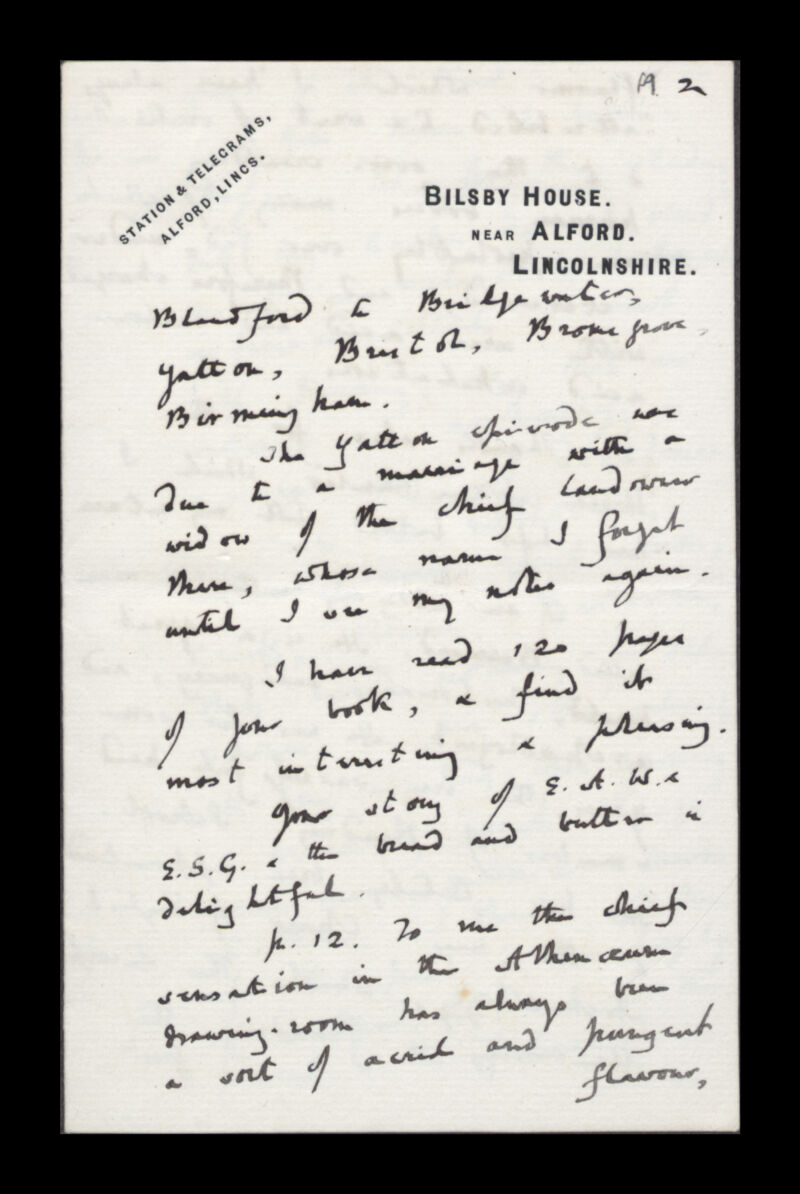 2
STATION & TELEGRAMS,
ALFORD, LINCS.
BILSBY HOUSE.
NEAR ALFORD.
LINCOLNSHIRE.
Blandford to Bridgewater,
Yatton, Bristol, Bromsgrove,
Birmingham.
The Yatton episode was
due to a marriage with a
widow of the chief landowner
there, whose name I forget
until I see my notes again.
I have read 120 pages
of your book, & find it
most interesting & pleasing.
Your story of E. A. W. &
E.S.G. & the bread and butter is
delightful.
p. 12. To me the chief
sensation in the Athenæum
drawing-room has always been
a sort of acrid and pungent
flavour,